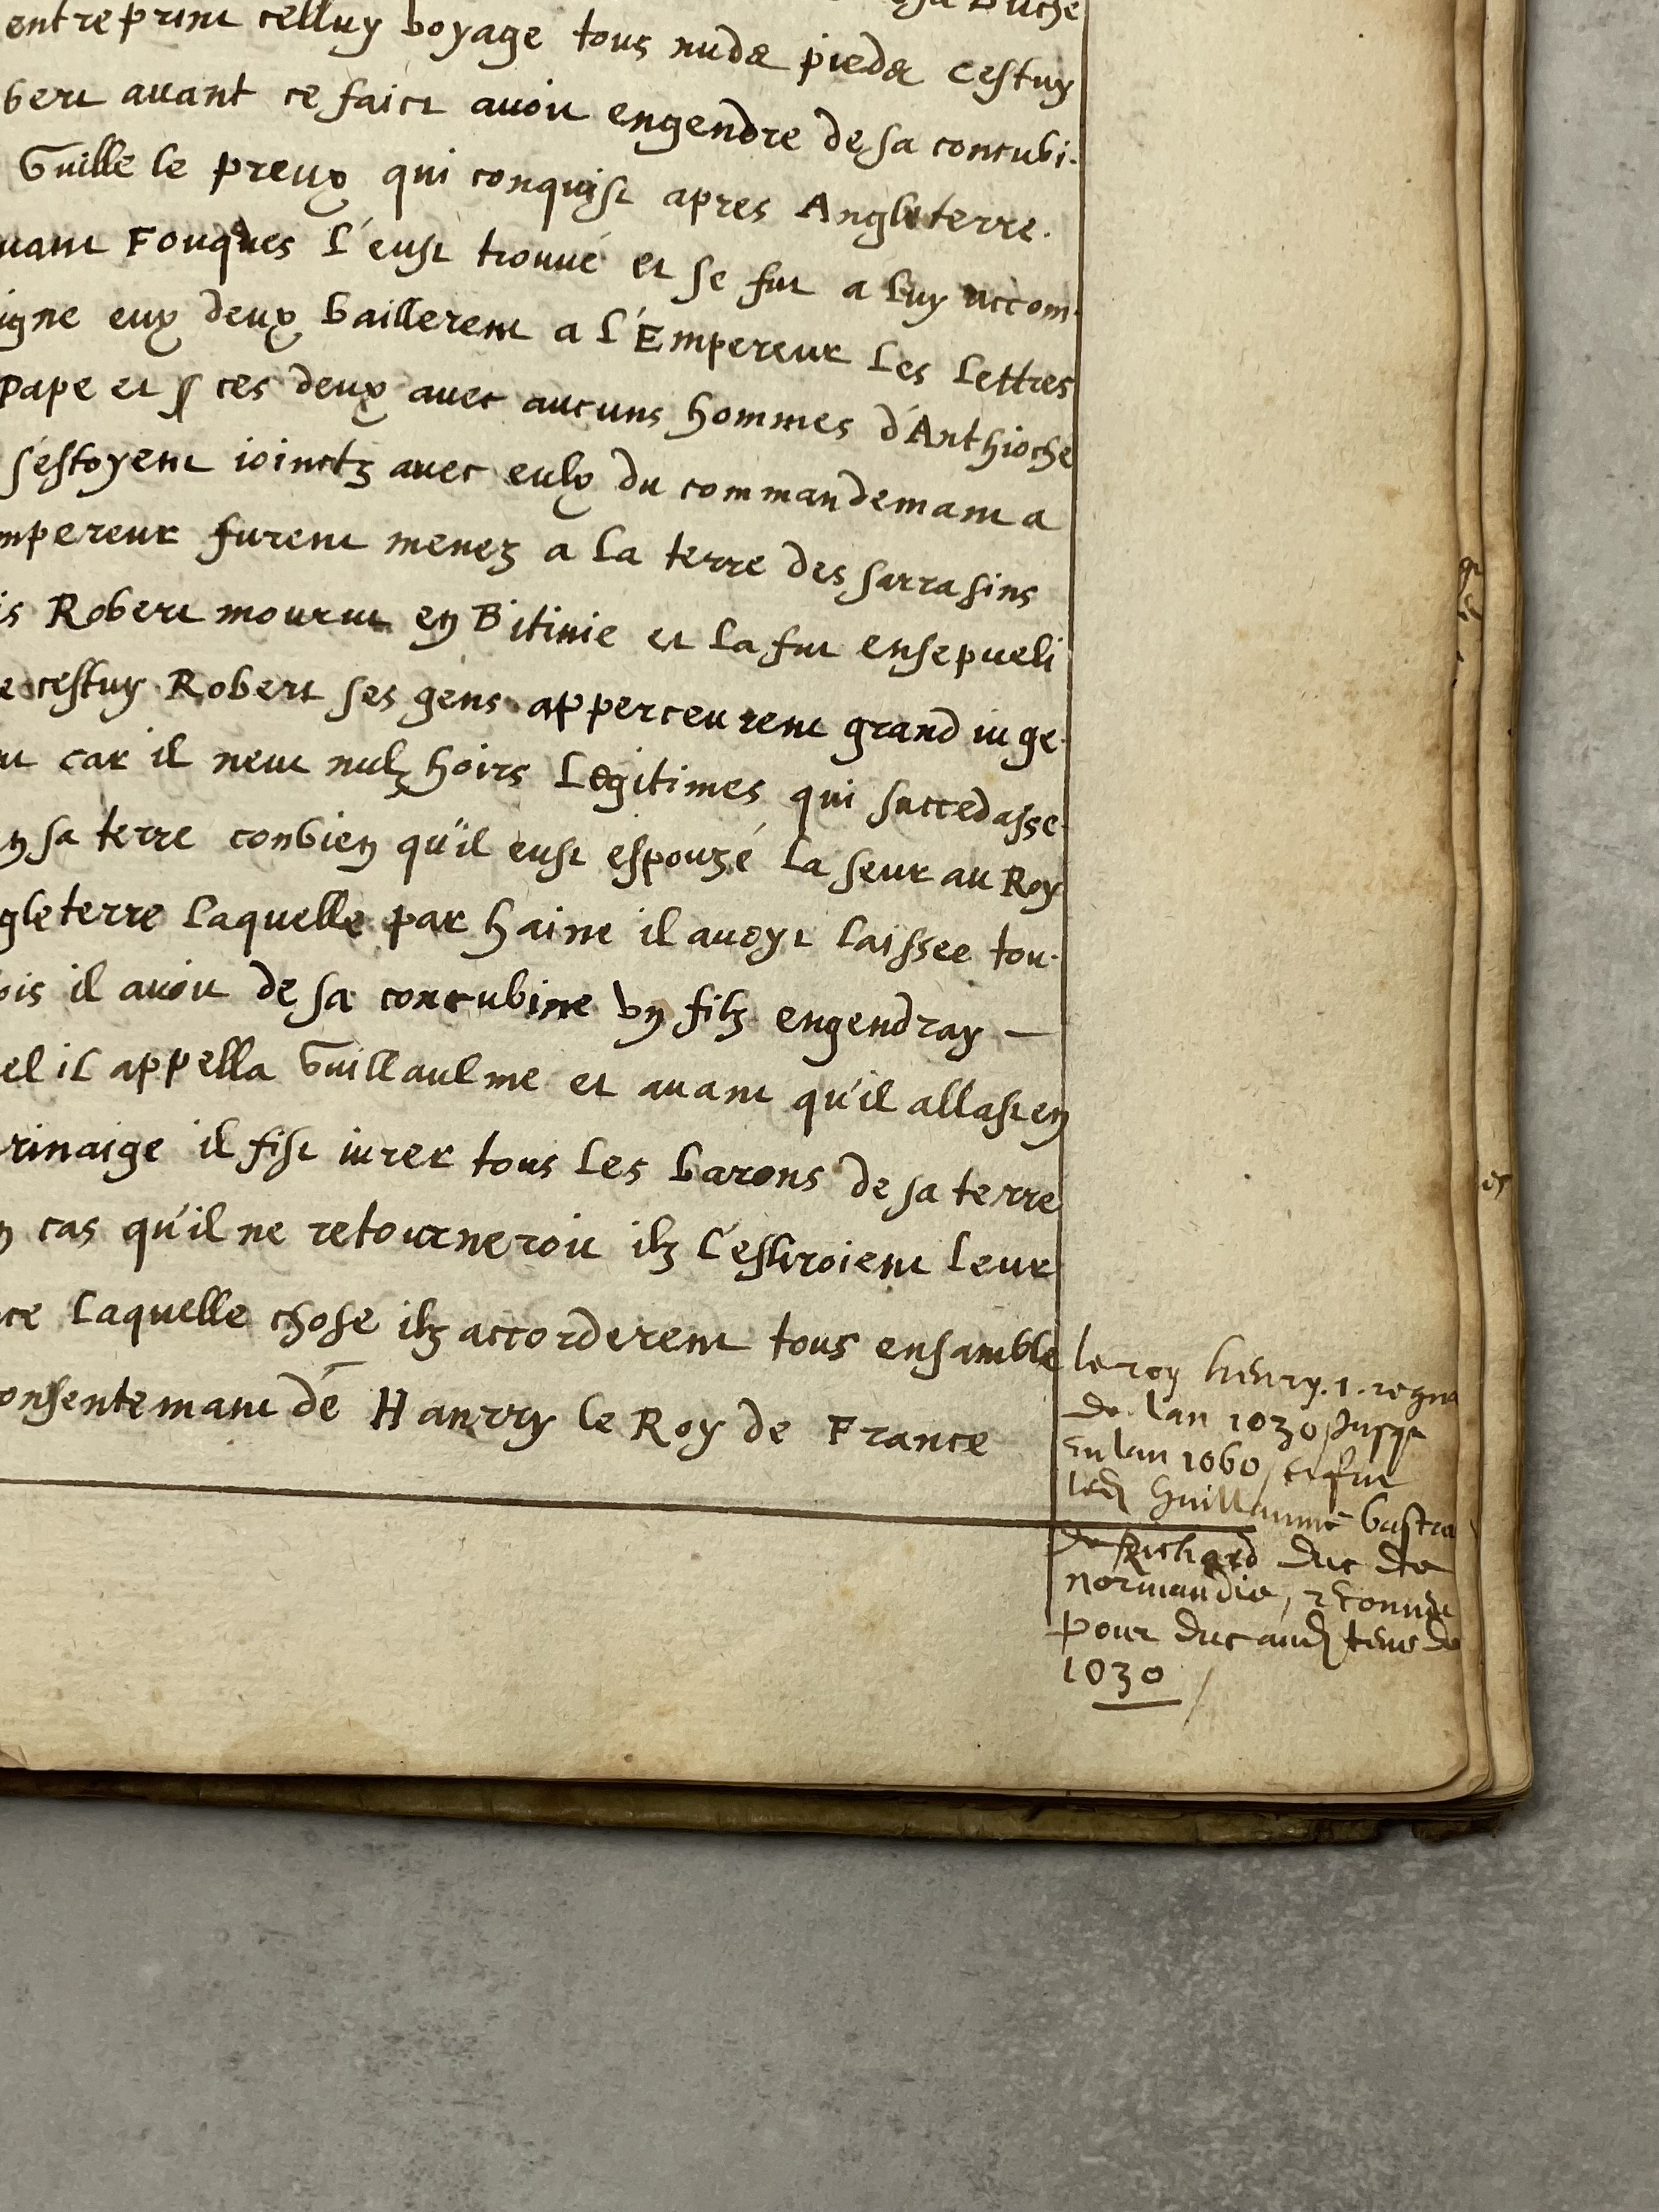 Duche
entreprint celluy voyage tous nudz piedz cestuy
bert avant ce faict avoit engendre de sa concubi-
Guille le preux qui conquist apres Angleterre.
uant Fouques l'eust trouué et se fut a luy accom-
igne eux deux baillerent a l'Empereur les lettres
Pape et ces deux avec aucuns hommes d'Anthioche
s'estoyent ioinctz avec eulx du commandemant a
mpereur furent menez a la terre des sarrasins
is Robert mourut en Bitinie et la fut ensepueli
e cestuy Robert ses gens apperceurent grand iuge-
nt car il neut nulz hoirs legitimes qui succedasse-
n sa terre conbien qu'il eust espouzé la seur au Roy
gleterre laquelle par haine il avoyt laissee tou-
ois il avoit de sa concubine vn filz engendray —
el il appella Guillaulme et avant qu'il allast en
rinaige il fist iurer tous les barons de sa terre
n cas qu'il ne retourneroit ilz l'esliroient leur
ce laquelle chose ilz accorderent tous ensamble
onsentemant de Hanrry le Roy de France
le roy henry .1. regna
de lan 1030 jusqu
en lan 1060, et fut
led Guillaume bastar
de Richard duc de
normandie, reconnu
pour duc aud tems de
1030